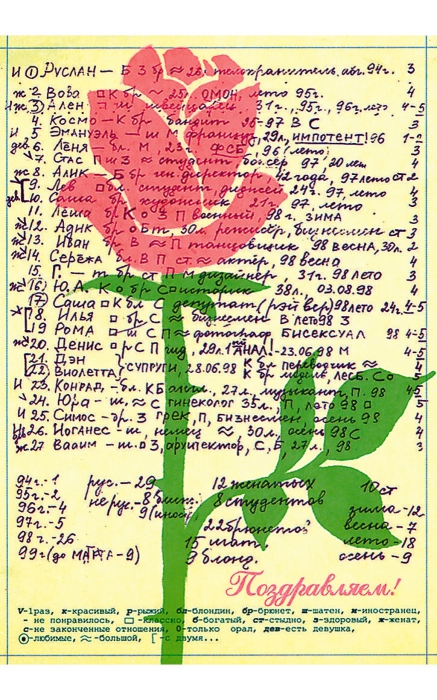 И ① РУСЛАН — Б З бр ≈ 26, телохранитель, авг. 94г. 3
ж 2. Вова □ К бр ~ 25, ОМОН, лето 95г. 3
3) Ален □ ш швейцарец 31г., 95, 96г. лето 4-5
4. Космо — К бр бандит 26-97 В С 3
И 5. Эмануэль — ш М француз, 29л, импотент! 96 1-2
6. Лёня — бл. М, 23г. ФСБ, 96, лето 3
7. Стас П ш З ≈ студент, боксёр 97, 20 лет 4
ж 8. Алик — Б бр ген. директор, 42 года, 97 лето ст 2
9. Лев □ бл. студент, 24г. 97, лето 4
10. Саша бр. художник 21г. 97, лето 4
11. Лёша бр К О З П военный 98г. ЗИМА 3
12. Адик — бр О Б т. 30л. режиссёр, бизнесмен ст 3
13. Иван бр В ≈ П танцовщик 98 весна, 30л. 2
14. Серёжа бл. В П ст. ≈ актёр, 98 весна 4
15. Г. — т. бр ст П М дизайнер, 31г. 98 лето 3
ж 16) Ю.А. К бр С историк 38л., 03.08.98 4
17) Саша □ К бл С депутат (рэйвер) 98 лето 24г. 4-5
18. Илья бр С ≈ бизнесмен В лето 98 3
19 РОМА — ш С П ≈ фотограф БИСЕКСУАЛ 98 4-5
ж 20. Денис □ ш С П 29л. АНАЛ! -23.06.98 М 4-5
21. Дэн } СУПРУГИ, 28.06.98 К бл переводчик ≈ 4
22) Виолетта К бр модель, лесб. Со 4
И 23. Конрад — бл. К Б англ., 27л., музыкант, П. 98 4-5
24. Юра — ш. ≈ С гинеколог 35л., П, лето 98 □ 5
И 25. Симос — бр. З грек, П, Бизнесмен, осень 98 4
26. Йоганес — ш немец ≈ 30л., осень 98 С 4
ж 27 Вадим — ш. □ З, архитектор, С, Б, 27л., 98 3
94г. - 1 рус. — 29 12 женатых 10 ст
95г. - 2 нерус. - 8 8 студентов зима - 12
96г. - 4 9 (иной) весна - 7
97г. - 5 22 брюнетов лето - 18
98г. - 26 15 шат. осень - 9
99г (до МАРТА - 9) 9 блонд.
Поздравляем!
V-1раз, к-красивый, р-рыжий, бл-блондин, бр-брюнет, ш-шатен, и-иностранец,
- не понравилось, □-классно, б-богатый, ст-стыдно, з-здоровый, ж-женат,
с-не законченные отношения, О-только орал, дев-есть девушка,
⊙-любимые, ≈-большой, [-с двумя...